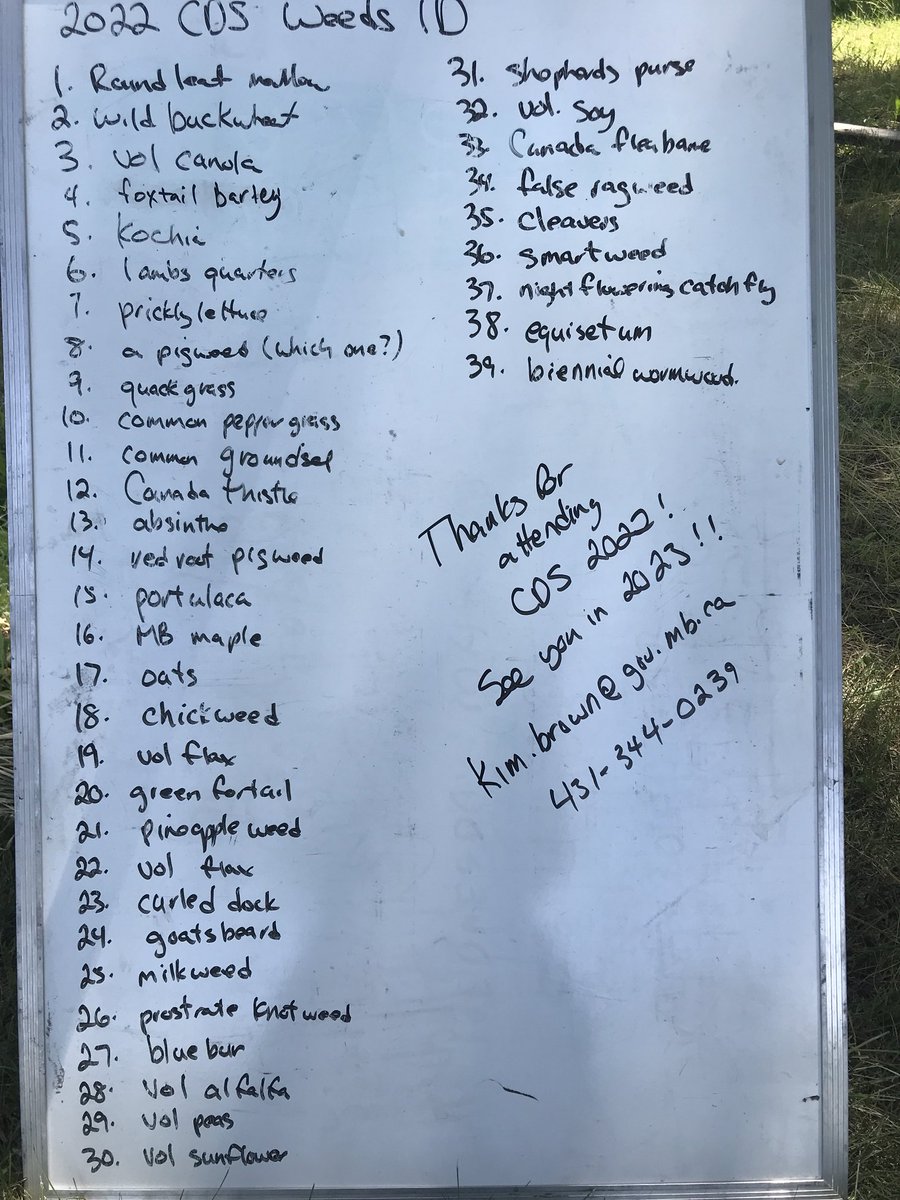 2022 CDS Weeds ID
1. Round leaf mallow
2. wild buckwheat
3. vol canola
4. foxtail barley
5. Kochia
6. lambs quarters
7. prickly lettuce
8. a pigweed (which one?)
9. quackgrass
10. common peppergrass
11. common groundsel
12. Canada thistle
13. absinthe
14. redroot pigweed
15. portulaca
16. MB maple
17. oats
18. chickweed
19. vol flax
20. green foxtail
21. pineapple weed
22. vol flax
23. curled dock
24. goatsbeard
25. milkweed
26. prostrate Knotweed
27. blue bur
28. vol alfalfa
29. vol peas
30. vol sunflower
31. shepherds purse
32. vol. soy
33. Canada fleabane
34. false ragweed
35. cleavers
36. smartweed
37. night flowering catchfly
38. equisetum
39. biennial wormwood.
Thanks for
attending
CDS 2022!
See you in 2023!!
Kim.brown@gov.mb.ca
431-344-0239